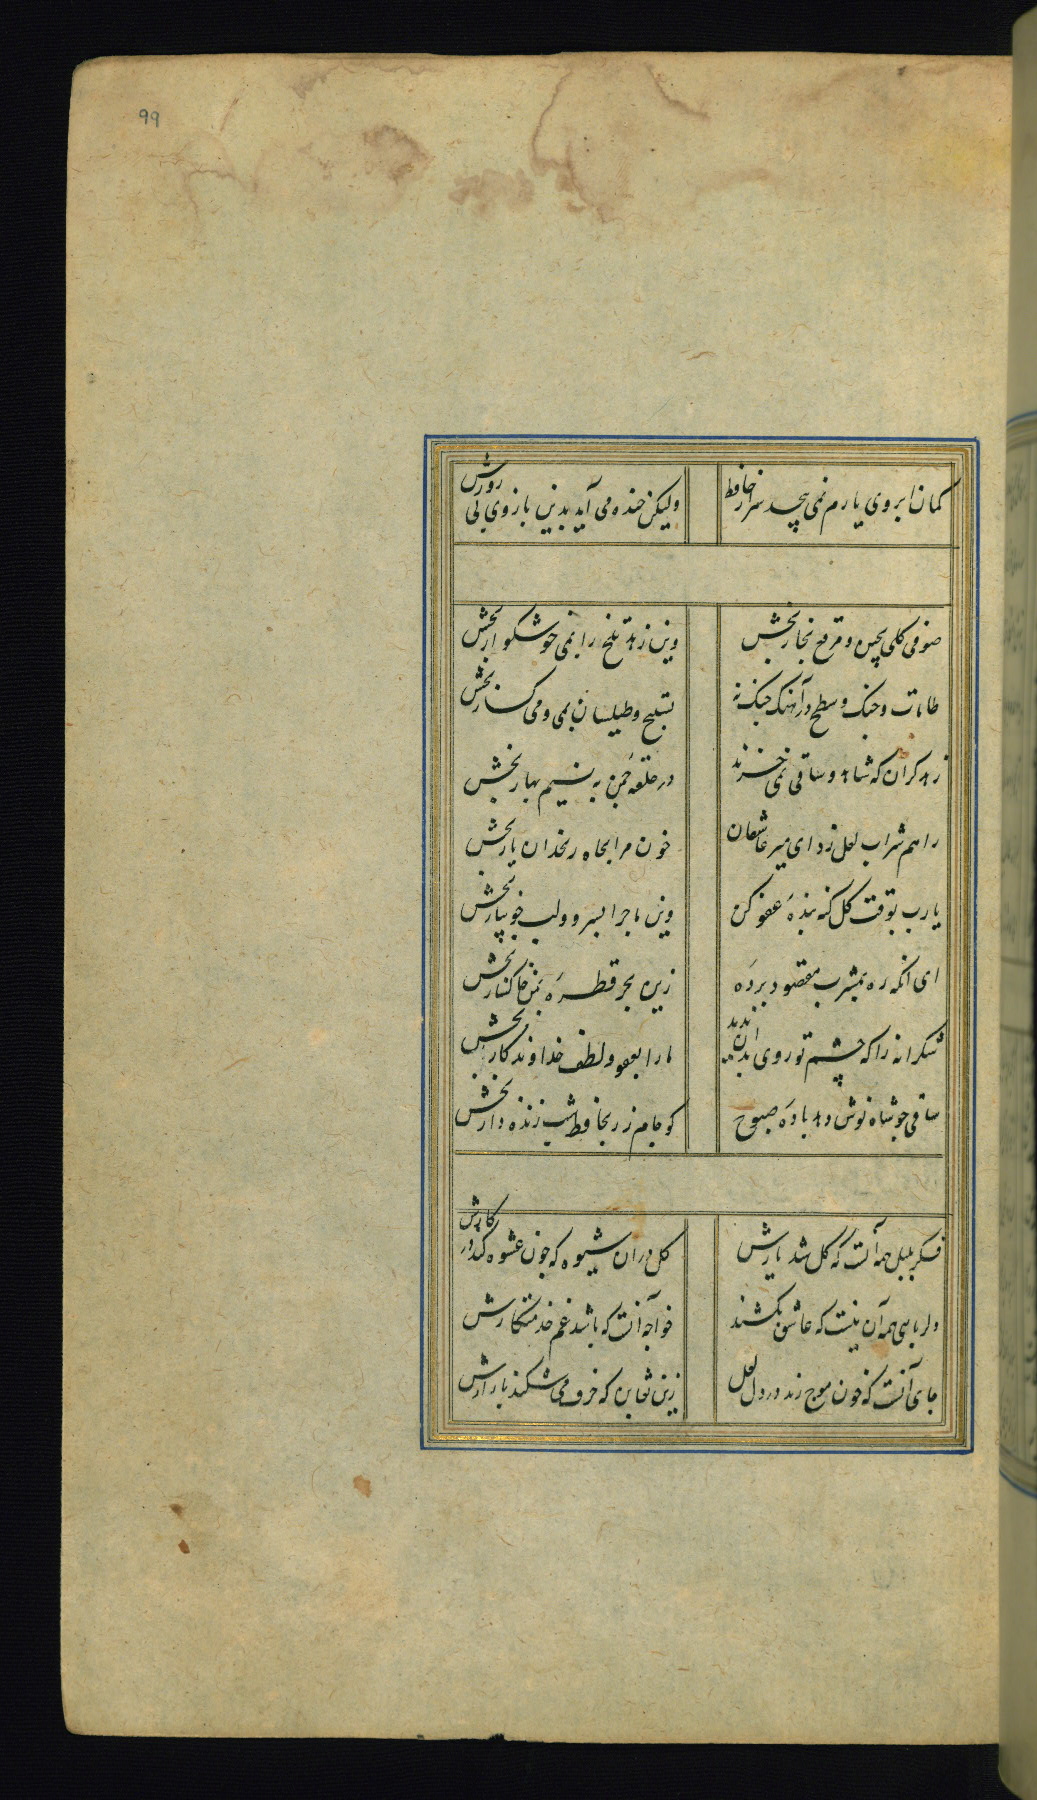 99
کمان ابروی یارم نمی پیچد سر از حافظ
ولیکن خنده می آید بدین بازوی بی زورش
صوفی کلی بچین و مرقع بخار بخش
وین زهد تلخ را بمی خوشکوار بخش
طامات و شطح در آهنک چنک نه
تسبیح و طیلسان بمی و می کسار بخش
زهد کران که شاهد و ساقی نمی خرند
در حلقه چمن به نسیم بهار بخش
راهم شراب لعل زد ای میر عاشقان
خون مرا بچاه زنخدان یار بخش
یا رب بوقت کل کنه بنده عفو کن
وین ماجرا بسرو و لب جویبار بخش
ای انکه ره بمشرب مقصود برده
زین بحر قطره بمن خاکسار بخش
شکرانه را که چشم تو روی بدان ندید
ما را بعفو و لطف خداوندکار بخش
ساقی چو شاه نوش دهد باده صبوح
کو جام زر بحافظ شب زنده دار بخش
فکر بلبل همه آنست که کل شد یارش
کل در ان شیوه که چون عشوه کند در کارش
دلربایی همه آن نیست که عاشق بکشند
خواجه آنست که باشد غم خدمتکارش
جای آنست که خون موج زند در دل لعل
زین تغابن که خزف می شکند بازارش